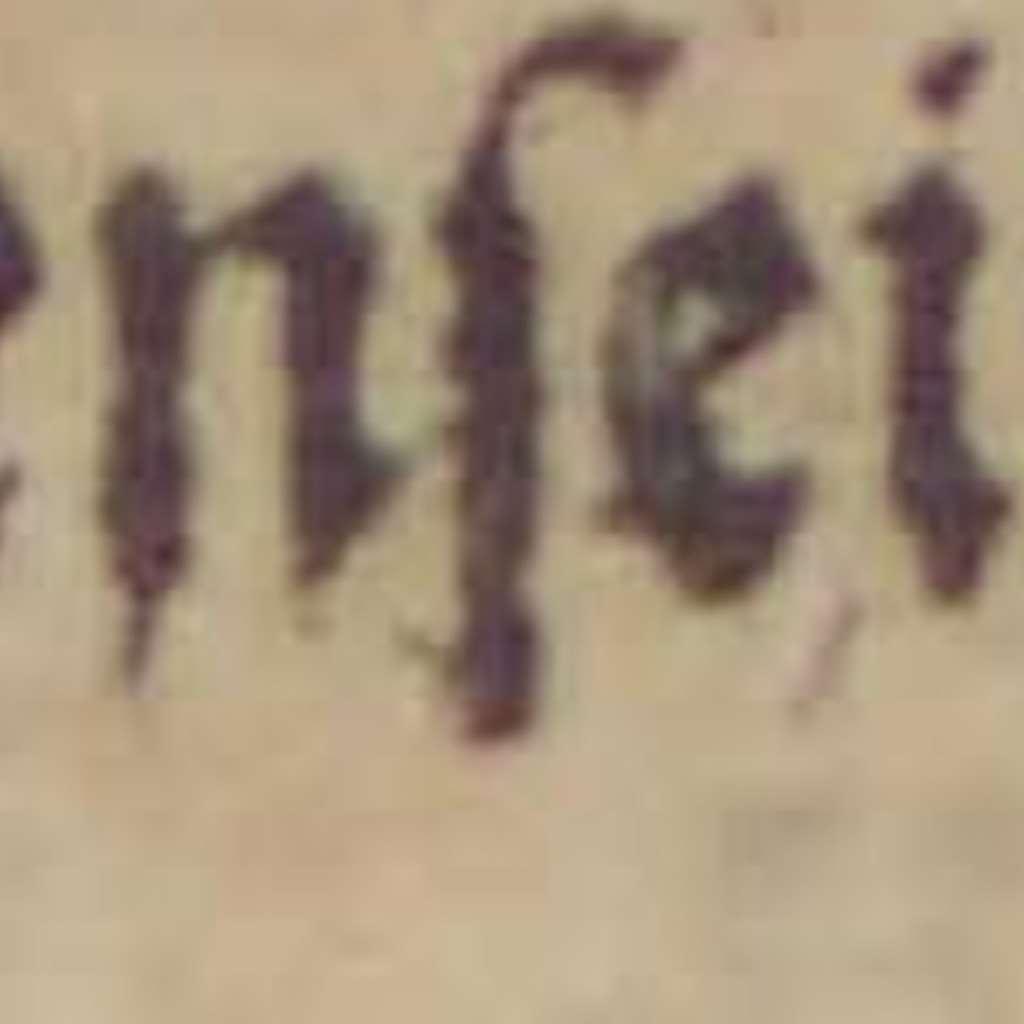 nſei